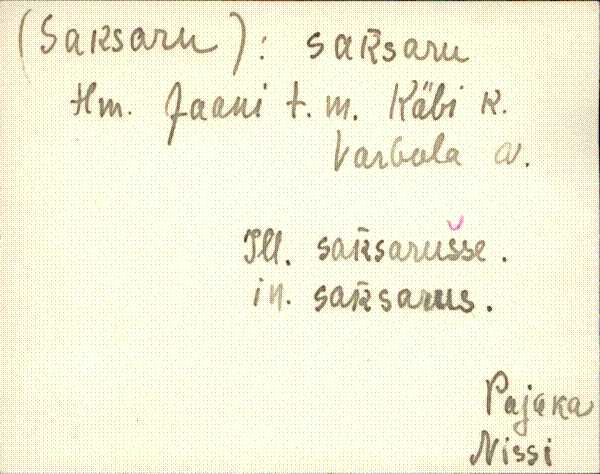 (Saksaru): sak̄saru
Hm. Jaani t. m. Käbi k.
Varbola v.
Ill. sak̄sarušse.
in. sak̄sarus.
Pajaka
Nissi